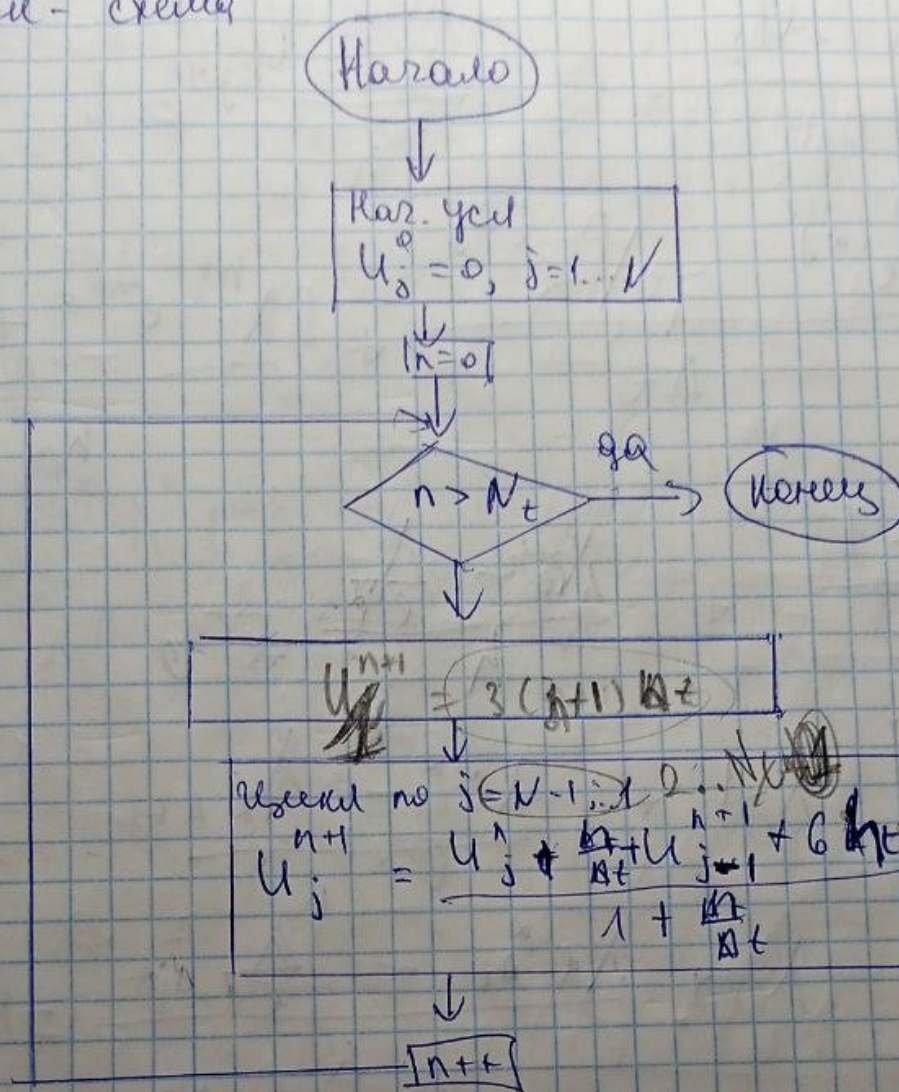 схема
Начало
Нач. усл
U_j^0 = 0, j=1...N
n=0
n > N_t
да
Конец
U^{n+1} = 3(n+1) t
Цикл по j=N-1;.1 2...N_x
U_j^{n+1} = U_j^n + U_{j-1}^{n+1} + 6 h_t
1 + t
n++